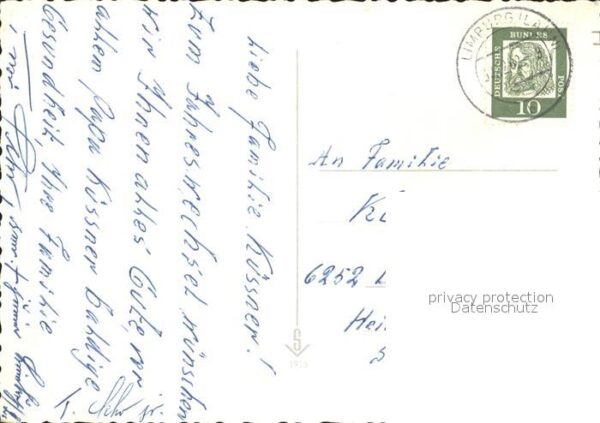 Liebe Familie Küssner!
Zum Jahreswechsel wünschen
wir Ihnen alles Gute, vor
allem Papa Küssner baldige
Gesundheit. Ihre Familie
jr.
LIMBURG (LAHN)
DEUTSCHE
BUNDES
POST
10
An Familie
6252
Hei
privacy protection
Datenschutz
S